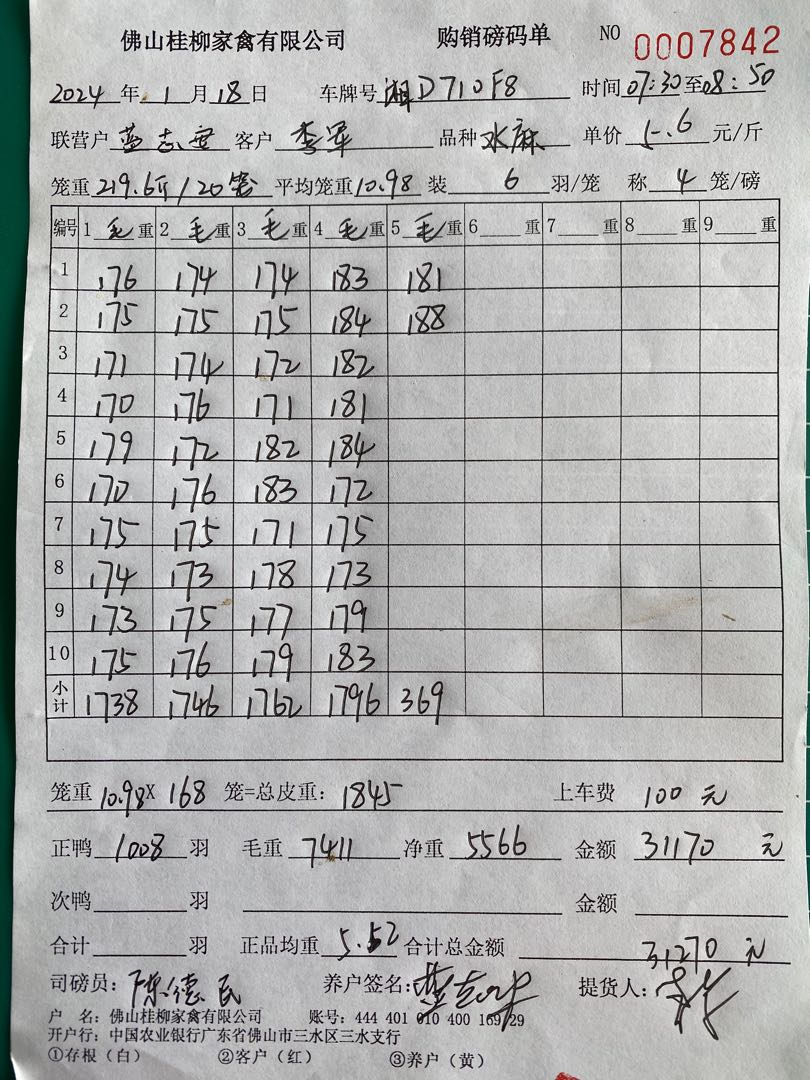 佛山桂柳家禽有限公司 购销磅码单 NO 0007842
2024年1月18日 车牌号湘D710F8 时间07:30至08:50
联营户 客户李军 品种水麻 单价5.6元/斤
笼重219.6斤/20笼 平均笼重10.98 装6羽/笼 称4笼/磅
编号 1毛重 2毛重 3毛重 4毛重 5毛重 6重 7重 8重 9重
1 176 174 174 183 181
2 175 175 175 184 188
3 171 174 172 182
4 170 176 171 181
5 179 172 182 184
6 170 176 183 172
7 175 175 171 175
8 174 173 178 173
9 173 175 177 179
10 175 176 179 183
小计 1738 1746 1762 1796 369
笼重10.98X168笼=总皮重：1845 上车费 100元
正鸭1008羽 毛重7411 净重5566 金额31170元
次鸭 羽 金额
合计 羽 正品均重5.52 合计总金额31270元
司磅员：陈德民 养户签名： 提货人：
户 名：佛山桂柳家禽有限公司 账号：444 401 010 400 169 29
开户行：中国农业银行广东省佛山市三水区三水支行
①存根（白） ②客户（红） ③养户（黄）